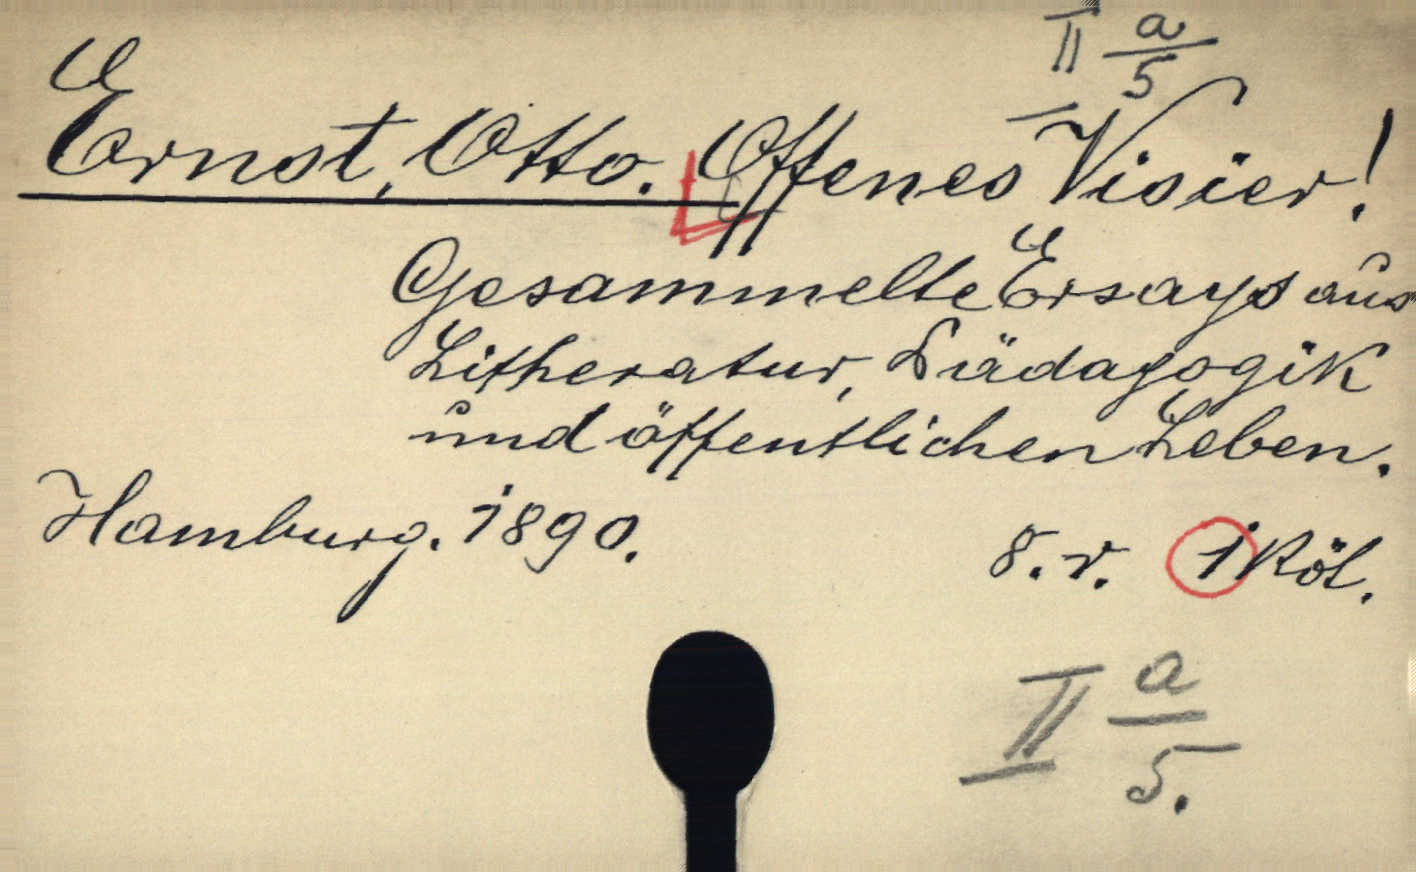 II a/5
Ernst, Otto. Offenes Visier!
Gesammelte Essays aus
Litheratur, Pädagogik
und öffentlichen Leben.
Hamburg. 1890.
8.v. 1 Köt.
II a/5.